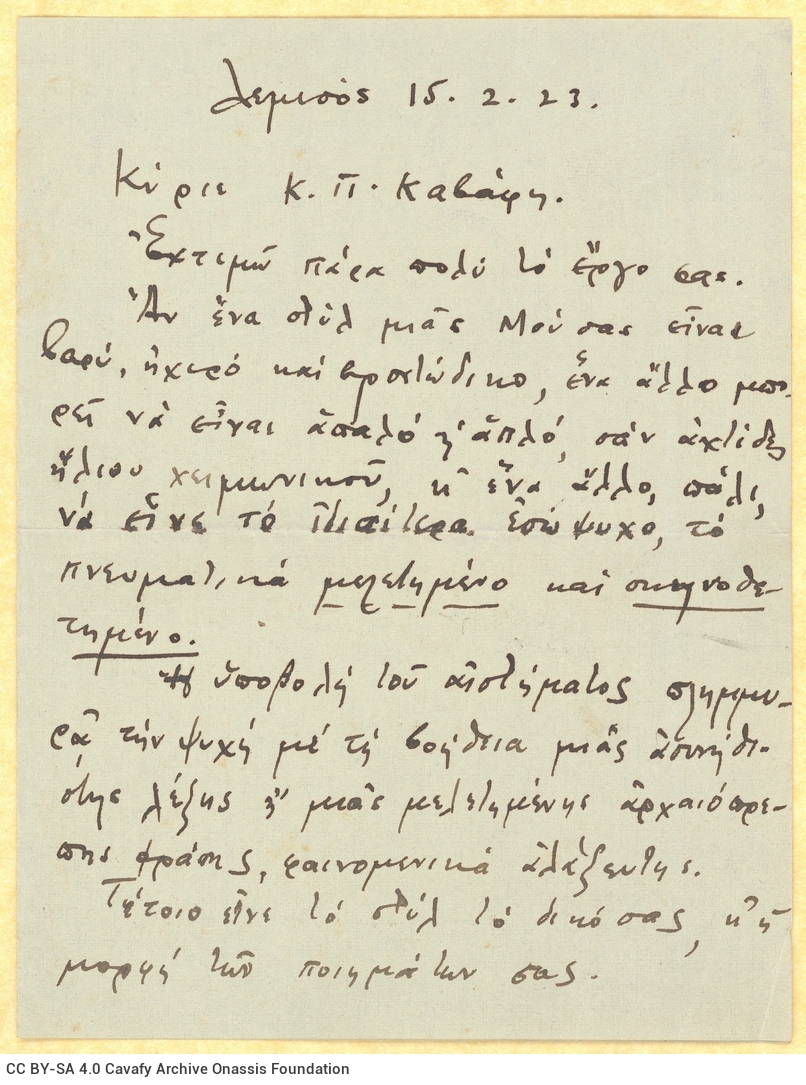 Λεμισὸς 15. 2. 23.
Κύριε Κ. Π. Καβάφη.
Ἐχτιμῶ πάρα πολὺ τὸ ἔργο σας.
Ἂν ἕνα στὺλ μιᾶς Μούσας εἶναι
βαρύ, ἠχερό καὶ βροντώδικο, ἕνα ἄλλο μπο-
ρεῖ νὰ εἶναι ἁπαλό κ' ἁπλό, σὰν ἀχτίδες
ἥλιου χειμωνικοῦ, κ' ἕνα ἄλλο, πάλι,
νά εἶνε τό ἰδιαίτερα ἐσώψυχο, τό
πνευματικά μελετημένο καὶ σκηνοθε-
τημένο.
Ἡ ὑποβολή τοῦ αἰστήματος πλημμυ-
ρᾶ τὴν ψυχή μέ τή βοήθεια μιᾶς ἀσυνήθι-
στης λέξης ἤ μιᾶς μελετημένης ἀρχαιόπρε-
πης φράσης, φαινομενικά ἀλάξευτης.
Τέτοιο εἶνε τό στὺλ τὸ δικό σας, κ' ἡ
μορφή τῶν ποιημάτων σας.
CC BY-SA 4.0 Cavafy Archive Onassis Foundation